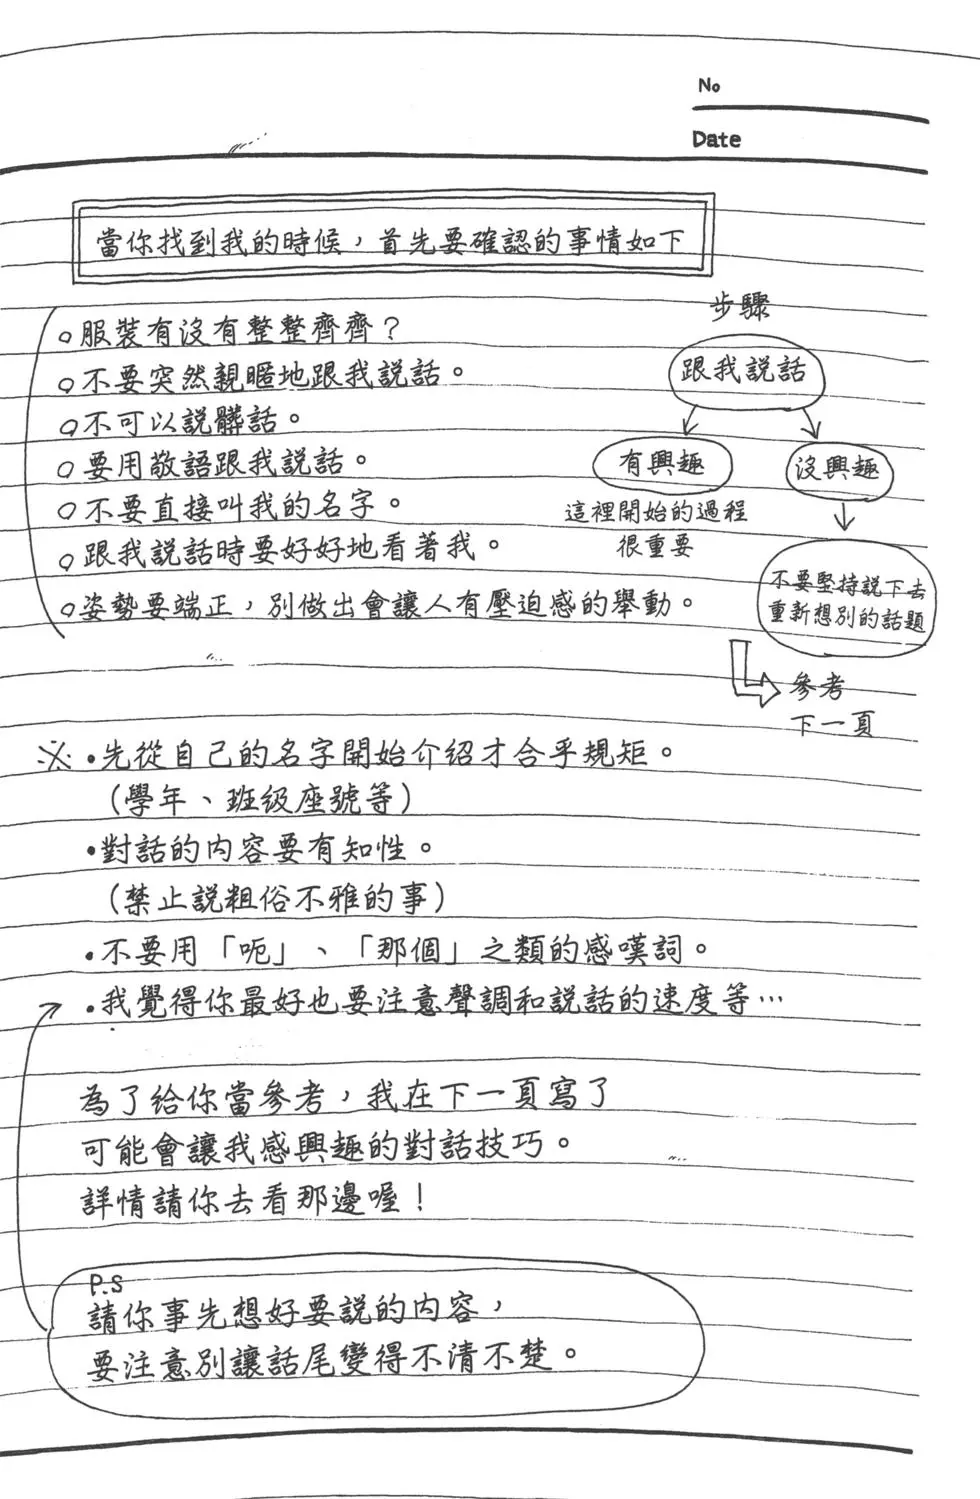 No
Date
當你找到我的時候，首先要確認的事情如下
。服裝有沒有整整齊齊？
。不要突然親暱地跟我說話。
。不可以說髒話。
。要用敬語跟我說話。
。不要直接叫我的名字。
。跟我說話時要好好地看著我。
。姿勢要端正，別做出會讓人有壓迫感的舉動。
步驟
跟我說話
有興趣
沒興趣
這裡開始的過程
很重要
不要堅持說下去
重新想別的話題
參考
下一頁
※•先從自己的名字開始介紹才合乎規矩。
（學年、班級座號等）
•對話的內容要有知性。
（禁止說粗俗不雅的事）
•不要用「呃」、「那個」之類的感嘆詞。
•我覺得你最好也要注意聲調和說話的速度等…
為了給你當參考，我在下一頁寫了
可能會讓我感興趣的對話技巧。
詳情請你去看那邊喔！
P.S
請你事先想好要說的內容，
要注意別讓話尾變得不清不楚。